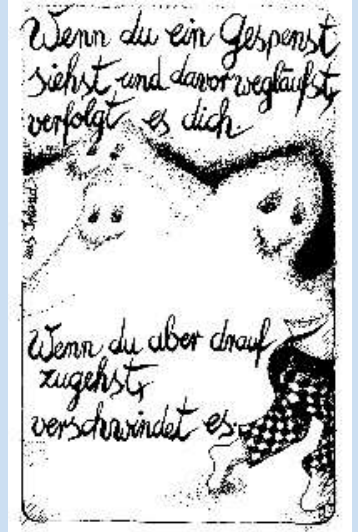 Wenn du ein Gespenst
siehst, und davor wegläufst,
verfolgt es dich
aus Irland
Wenn du aber drauf
zugehst,
verschwindet es.